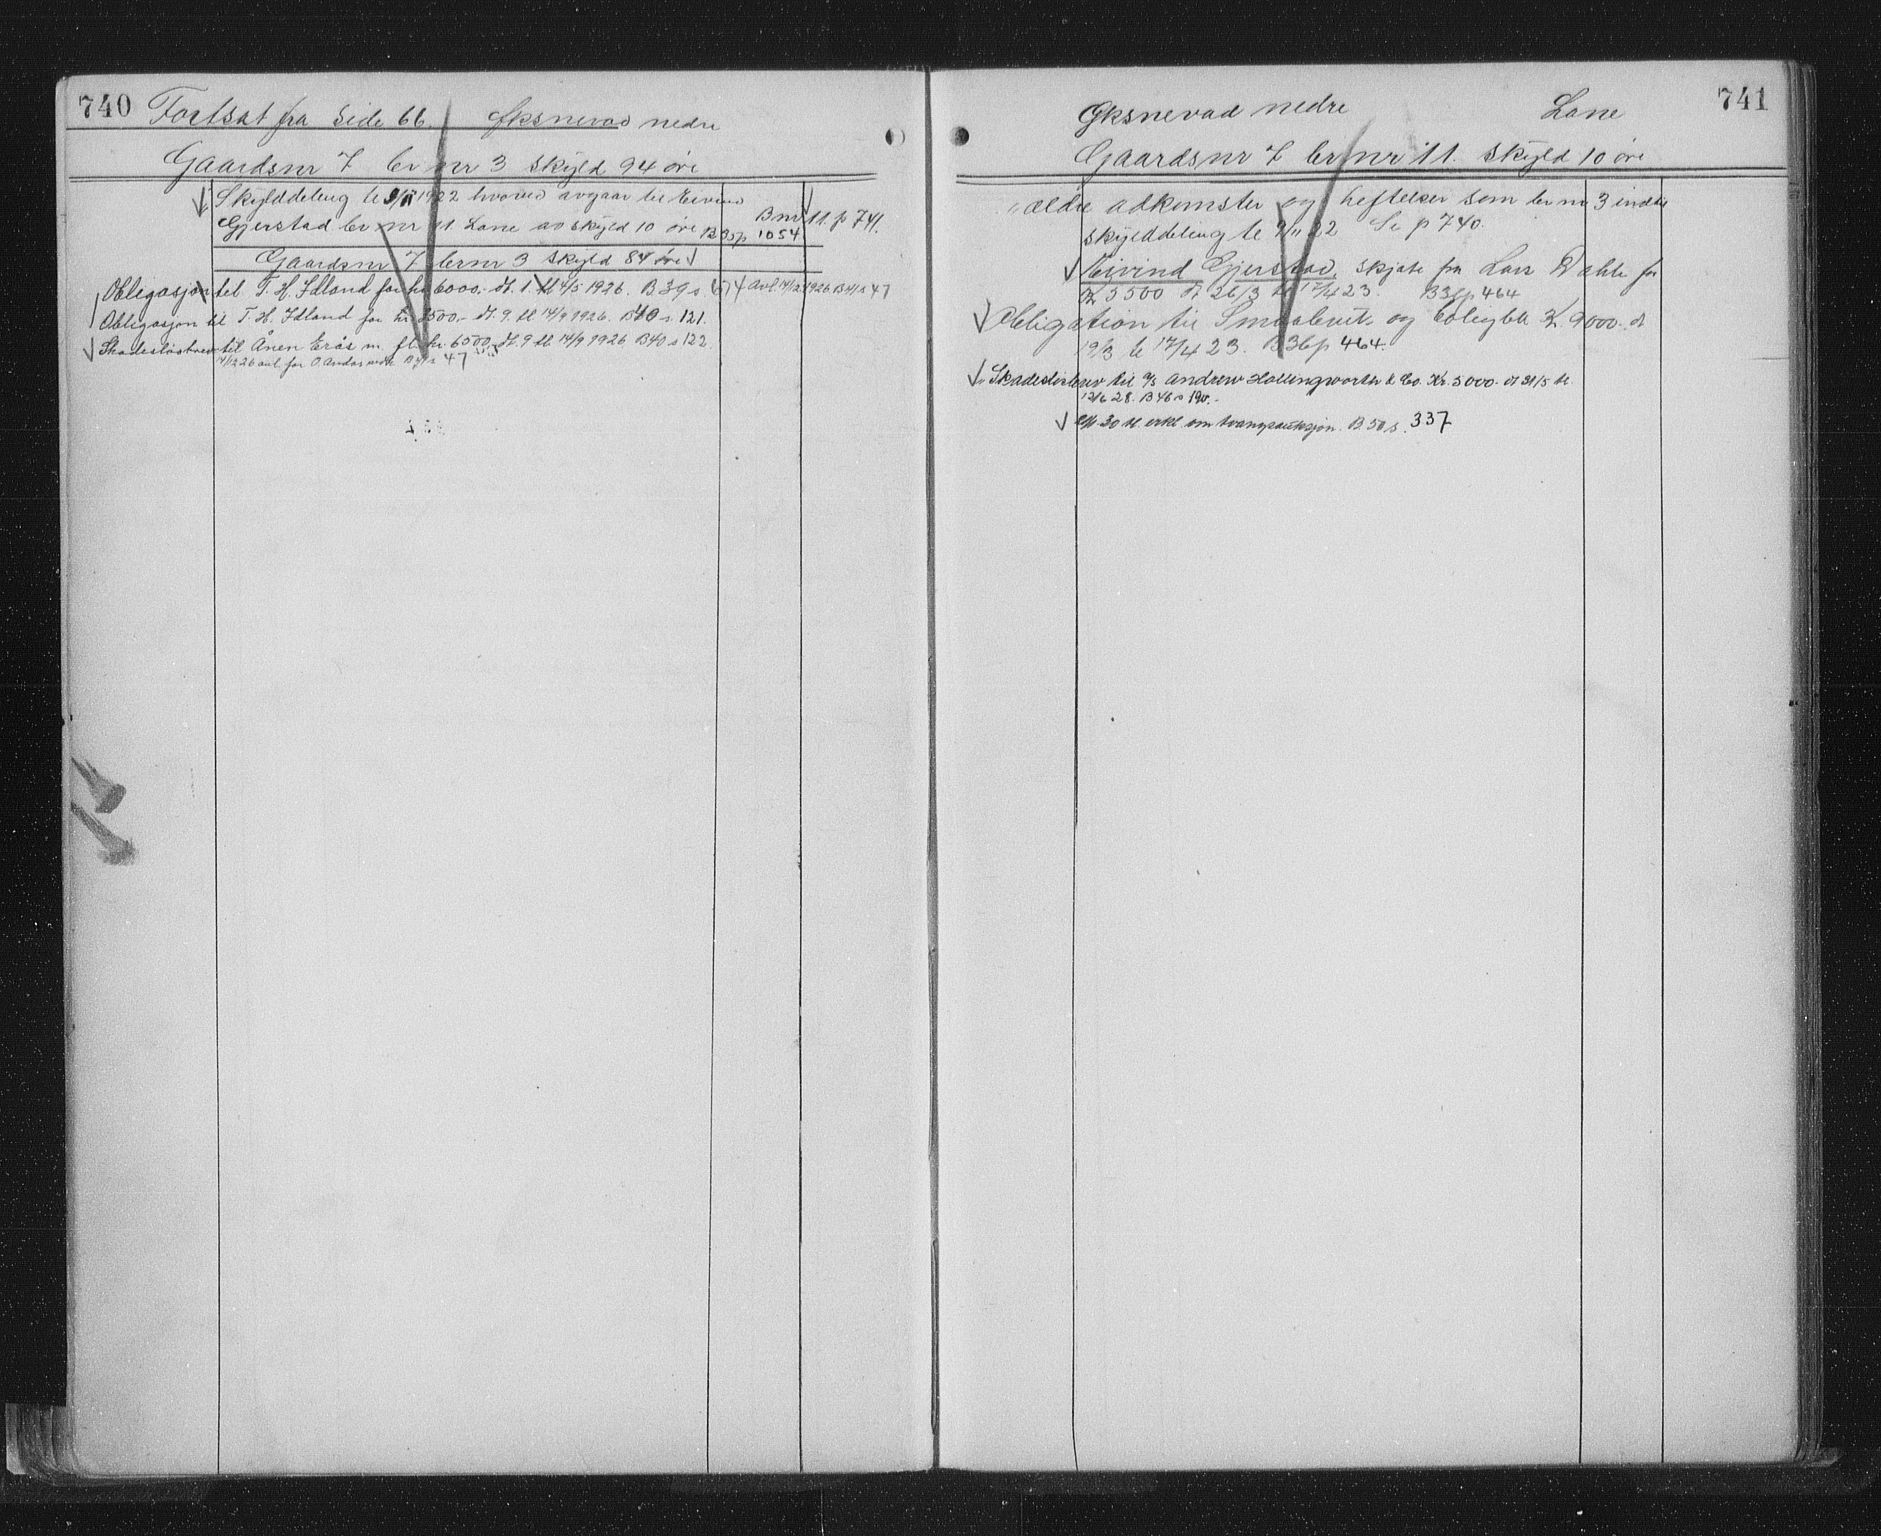 740 Fortsat fra Side 66. Øksnevad nedre
Gaardsnr 7 br nr 3 skyld 94 öre
Skylddeling tl 9/11 1922 hvorved avgaar til Eivind
Gjerstad br nr 11 Lone av skyld 10 öre B 35 p 1054 Bnr 11. p 741.
Gaardsnr 7 brnr 3 skyld 84 öre
Obligasjon til T. H. Idland for kr 6000.- dt. 1. tl 4/5 1926. B 39 s 674 Avl. 14/12 1926 B 41 s 47
Obligasjon til T. H. Idland for kr. 3500.- dt. 9. tl 14/9 1926. B 40 s 121.
Skadeslösbrev til Ånen Erås m. fl. kr. 6500,- dt. 9 tl 14/9 1926 B 40 s 122.
14/12 26 avl. for B 41 s 47
741
Øksnevad nedre Lone
Gaardsnr 7 br nr 11. skyld 10 öre
ældre adkomster og heftelser som br nr 3 indtil
skylddeling tl 9/11 22 Se p 740.
Eivind Gjerstad, skjöte fra Lars Dahle for
Kr 5500 dt 26/3 tl 17/4 23. B 36 p 464
Obligation til Smaabruk og Boligbk Kr 9000 dt
19/3 tl 17/4 23. B 36 p 464.
Skadeslösbrev til A/S Andrew Hollingworth & Co. Kr. 5000.- dt 31/5 tl.
12/6 28. B 46 s 190.-
30 tl. erkl. om tvangsauksjon. B. 50 s. 337